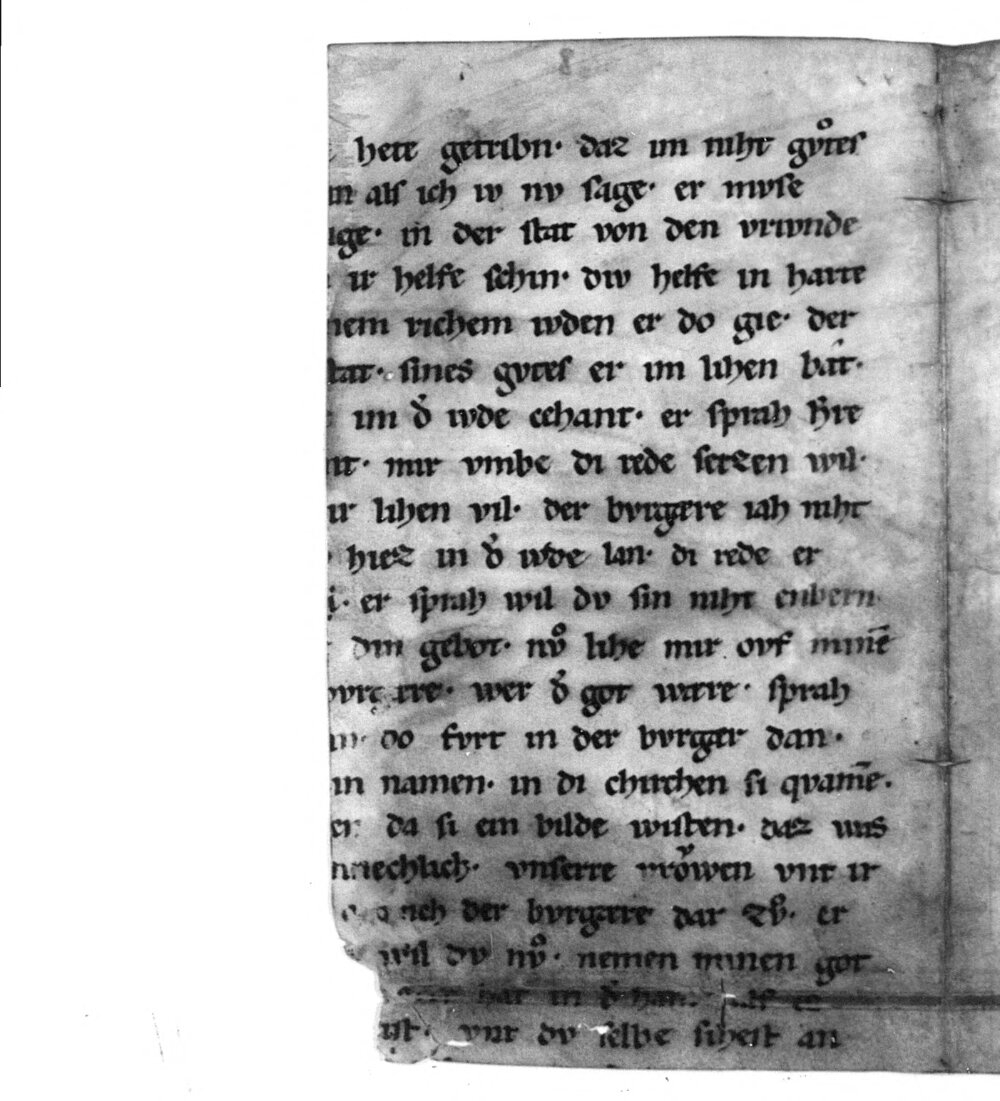 hete getribn· daz im niht gvͦtes
in als ich iv nv sage· er mvse
age· in der stat von den vrivnde
ir helfe schin· div helfe in harte
nem richem ivden er do gie· der
stat· sines gvtes er im lihen bat·
im d̾ ivde cehant· er sprah
mir vmbe di rede setzen wil·
ir lihen vil· der bvrgere iah niht
hiez in d̾ ivde lan· di rede er
er sprah wil dv sin niht enbern·
din gebot· nvͦ lihe mir ovf minē
bvrgære· wer d̾ got wære· sprah
do fvrt in der bvrgær dan·
in namen· in di chirchen si qvamē·
er da si ein bilde wisten· daz uns
nneclich· vnserre vrowen vnt ir
sich der bvrgære dar zvͦ· er
wil dv nvͦ· nemen minen got
hat in d̾
ist· vnt dv selbe sihest an